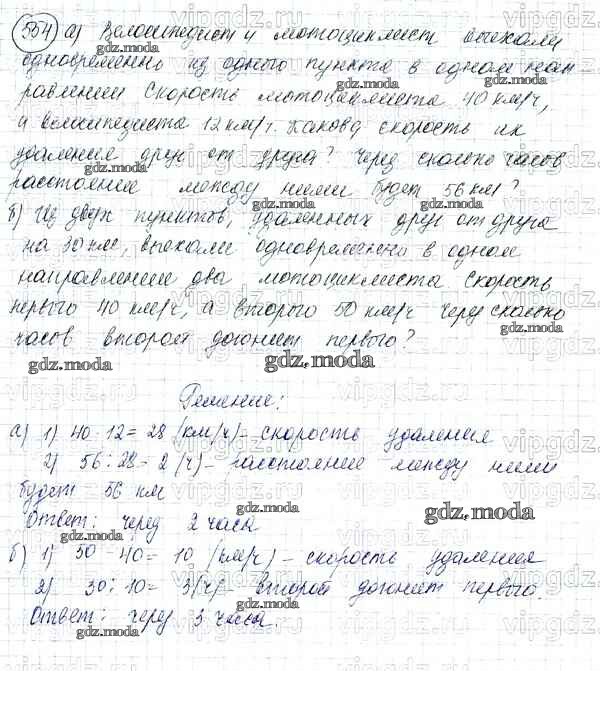 554 а) Велосипедист и мотоциклист выехали
одновременно из одного пункта в одном нап
равлении Скорость мотоциклиста 40 км/ч,
а велосипедиста 12 км/ч. Какова скорость их
удаления друг от друга? Через сколько часов
расстояние между ними будет 56 км?
б) Из двух пунктов, удаленных друг от друга
на 30 км, выехали одновременно в одном
направлении два мотоциклиста. Скорость
первого 40 км/ч, а второго 50 км/ч Через сколько
часов второй догонит первого?
Решение:
а) 1) 40-12=28 (км/ч) - скорость удаления
2) 56:28=2 (ч) - расстояние между ними
будет 56 км
Ответ: через 2 часа
б) 1) 50-40= 10 (км/ч) - скорость удаления
2) 30:10= 3(ч) - второй догонит первого.
Ответ: через 3 часа.
gdz.moda
vipgdz.com